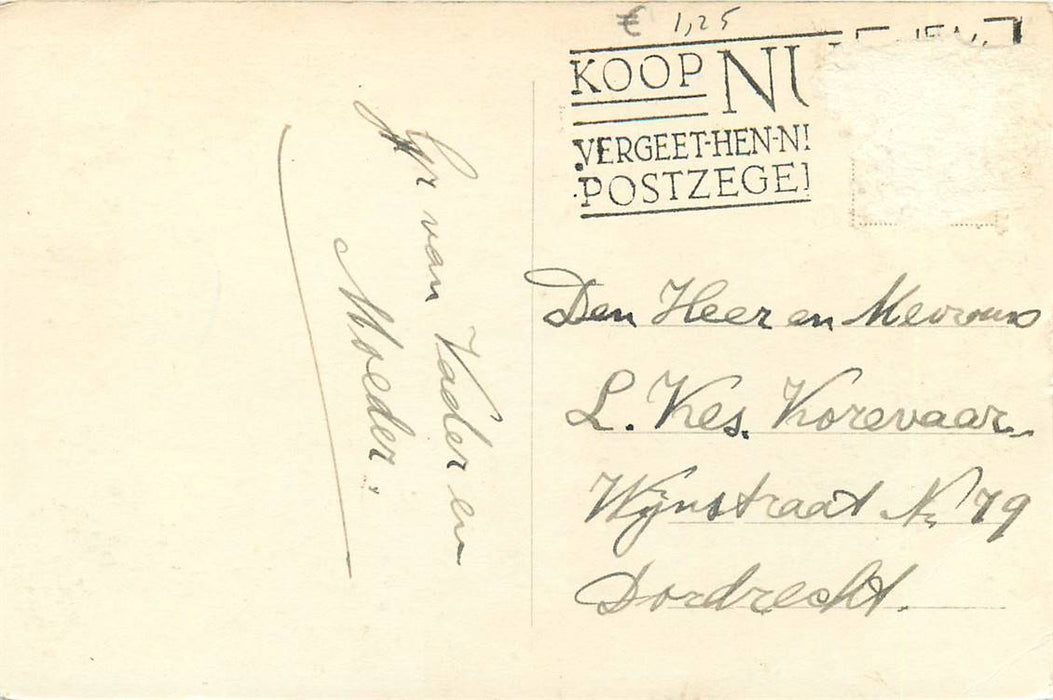 € 1,25
KOOP NU
VERGEET-HEN-NI
POSTZEGEL
Gr van Vader en
Moeder.
Den Heer en Mevrouw
L. Kes. Korevaar
Wijnstraat No 79
Dordrecht.